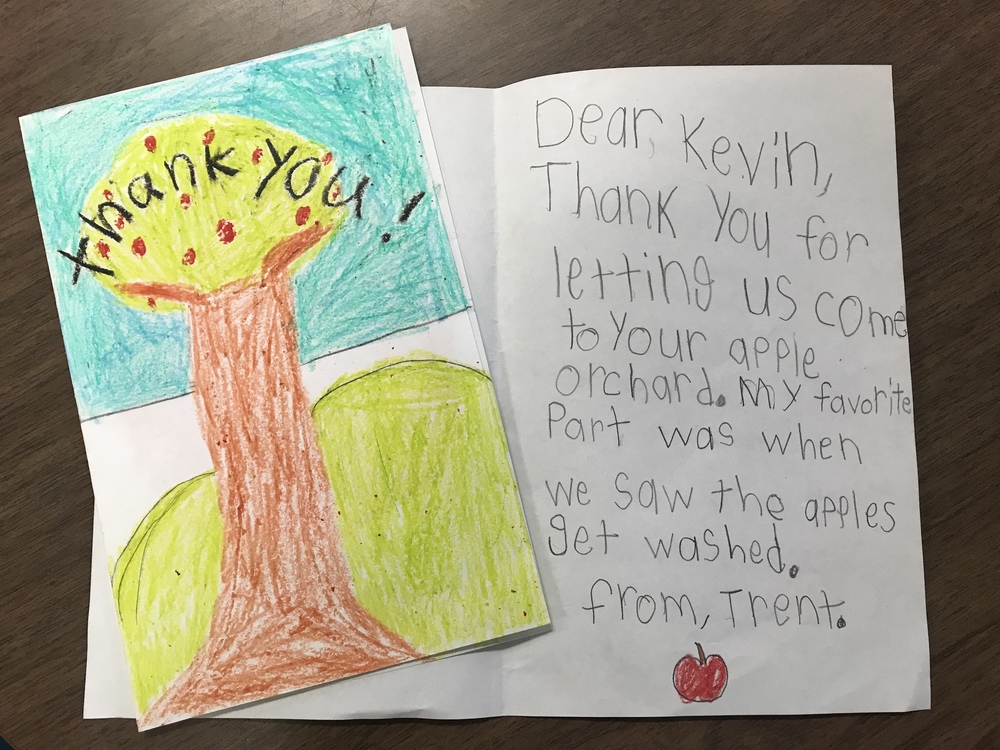 Thank You!
Dear, Kevin,
Thank You for
letting us come
to Your apple
orchard. My favorite
Part was when
we saw the apples
get washed.
from, Trent.